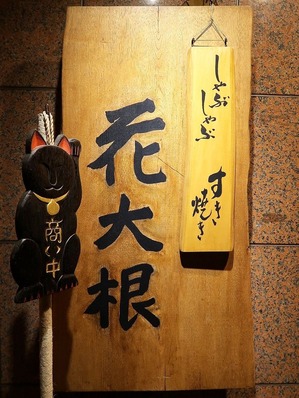 しゃぶしゃぶ
すき焼き
花大根
商い中